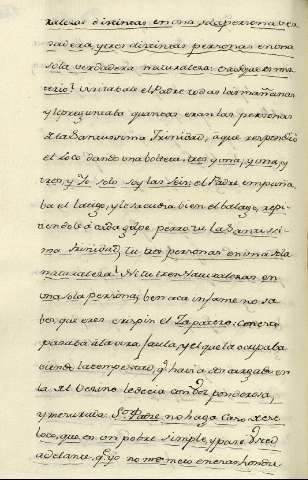 naturalezas distintas en una sola persona ver
dadera, y tres distintas personas en una
sola verdadera naturaleza:
visitabale el Padre todas las mañanas
y le preguntaba quantas eran las personas
de la Santissima Trinidad, a que respondio
el Loco dando una bolteta: tres y una, y una, y
tres, y Yo solo soy las seis; el Padre empuña
ba el latigo, y le sacudia bien el balago, repi
tiendole à cada golpe perro tu la Santissi
ma Trinidad? tu tres personas en una sola
naturaleza? Ni tu tres Naturalezas en
una sola persona; ben aca infame no sa
bes que eres crispin el Zapatero: Con esto
pasaba à la otra Jaula, y el que la ocupaba
oiendo la tempestad, q havia descargado en
la del becino le decia con voz ponderosa,
y mesurada: no haga caso de ese
loco, que es un pobre simple, y pase
adelante, q yo no me meto en esas hondu